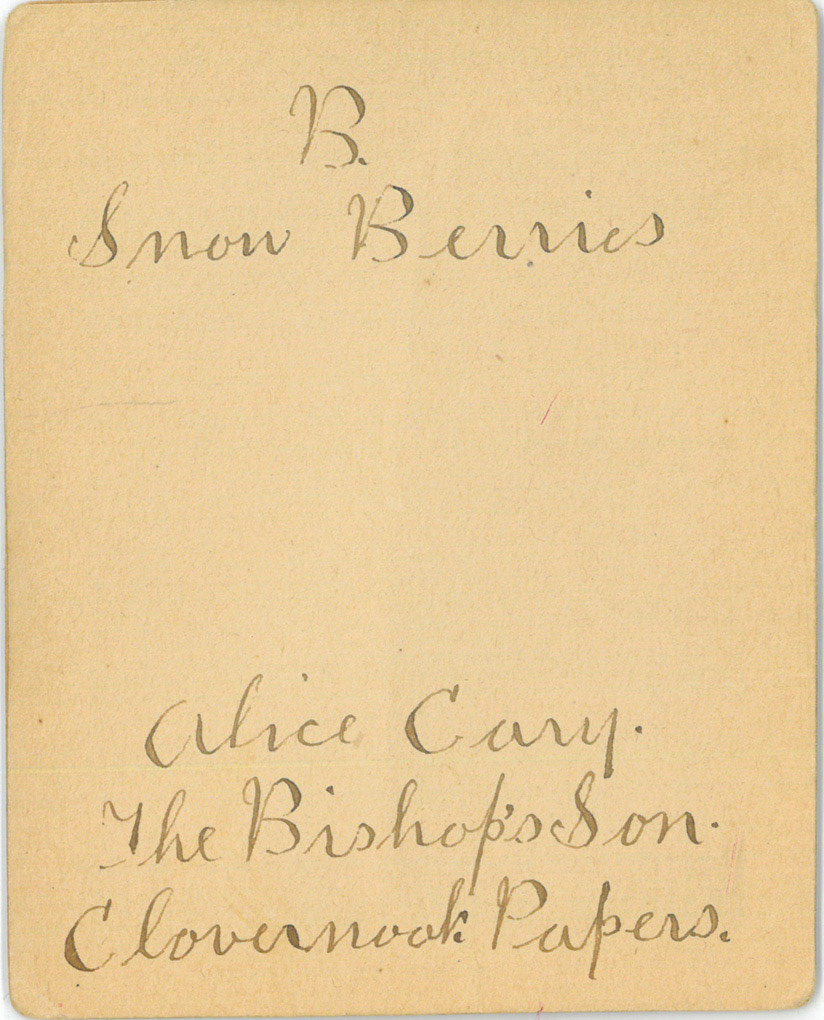 B.
Snow Berries
Alice Cary.
The Bishop's Son.
Clovernook Papers.